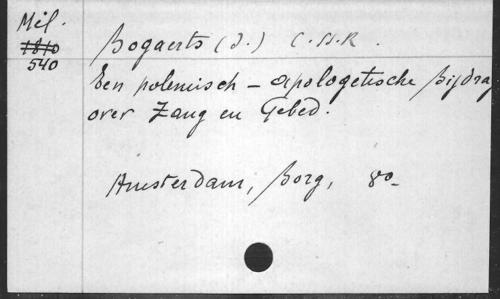 Mil.
1810
540
Bogaerts (J.) C.SS.R.
Een polemisch - apologetische Bijdrag
over Zang en Gebed.
Amsterdam, Borg, 8o